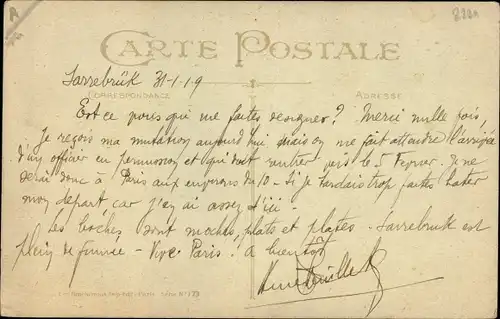 8221
CARTE POSTALE
Sarrebrük 31-1-19
CORRESPONDANCE ADRESSE
Est ce vous qui me faites designer? Merci mille fois,
Je reçois ma mutation aujourd'hui mais on me fait attendre l'arrivée
d'un officier en permission et qui doit rentrer vers le 5 Fevrier. Je ne
serai donc à Paris aux environs du 10 - Si je tardais trop faites hater
mon départ car j'en ai assez d'ici -
Les boches sont moches, plats et plates. Sarrebruk est
plein de fumée - Vive Paris! à bientôt